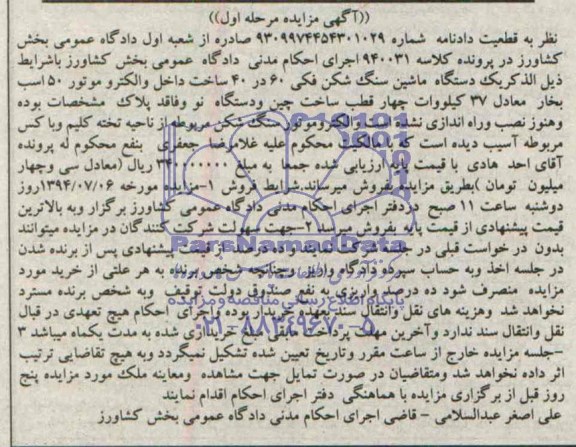 ((آگهی مزایده مرحله اول))
نظر به قطعیت دادنامه شماره ۹۳۰۹۹۷۴۴۵۴۳۰۱۰۲۹ صادره از شعبه اول دادگاه عمومی بخش
کشاورز در پرونده کلاسه ۹۴۰۰۳۱ اجرای احکام مدنی دادگاه عمومی بخش کشاورز باشرایط
ذیل الذکریک دستگاه ماشین سنگ شکن فکی ۶۰ در ۴۰ ساخت داخل والکترو موتور ۵۰ اسب
بخار معادل ۳۷ کیلووات چهار قطب ساخت چین ودستگاه نو وفاقد پلاک مشخصات بوده
وهنوز نصب وراه اندازی نشده است والکتروموتور سنگ شکن مربوطه از ناحیه تخته کلیم وبا کس
مربوطه آسیب دیده است که با مالکیت محکوم علیه غلامرضا جعفری بنفع محکوم له پرونده
آقای احد هادی با قیمت پایه ارزیابی شده جمعا به مبلغ ۳۴۰۰۰۰۰۰۰ ریال (معادل سی وچهار
میلیون تومان) بطریق مزایده بفروش میرساند.شرایط فروش ۱-مزایده مورخه ۱۳۹۴/۰۷/۰۶ روز
دوشنبه ساعت ۱۱ صبح دردفتر اجرای احکام مدنی دادگاه عمومی کشاورز برگزار وبه بالاترین
قیمت پیشنهادی از قیمت پایه بفروش میرسد ۲-جهت سهولت شرکت کنندگان در مزایده میتوانند
بدون در خواست قبلی در جلسه شرکت نمایند وده درصد از قیمت پیشنهادی پس از برنده شدن
در جلسه اخذ وبه حساب سپرده دادگاه واریز وچنانچه شخص برنده به هر علتی از خرید مورد
مزایده منصرف شود ده درصد واریزی به نفع صندوق دولت توقیف وبه شخص برنده مسترد
نخواهد شد وهزینه های نقل وانتقال سند بعهده خریدار بوده واجرای احکام هیچ تعهدی در قبال
نقل وانتقال سند ندارد وآخرین مهلت پرداخت مابقی مبلغ خریداری شده به مدت یکماه میباشد ۳
-جلسه مزایده خارج از ساعت مقرر وتاریخ تعیین شده تشکیل نمیگردد وبه هیچ تقاضایی ترتیب
اثر داده نخواهد شد ومتقاضیان در صورت تمایل جهت مشاهده ومعاینه ملک مورد مزایده پنج
روز قبل از برگزاری مزایده با هماهنگی دفتر اجرای احکام اقدام نمایند
علی اصغر عبدالسلامی - قاضی اجرای احکام مدنی دادگاه عمومی بخش کشاورز
ParsNamadData
پایگاه اطلاع رسانی مناقصه و مزایده
۰۲۱-۸۸۳۴۹۶۷۰-۵